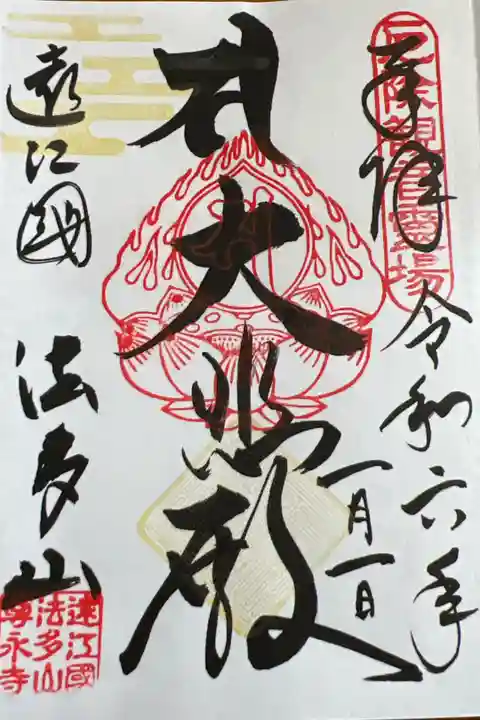 厄除觀音靈場
奉拝
令和六年
一月一日
大悲殿
遠江國
法多山
遠江國
法多山
尊永寺